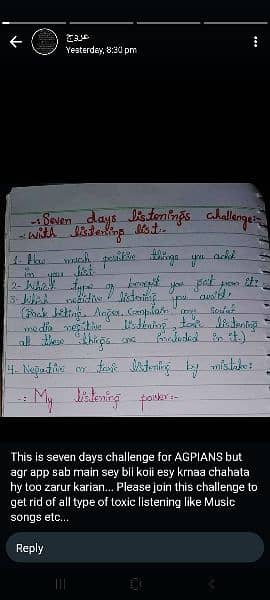 عروج
Yesterday, 8:30 pm
-: Seven days listenings challenge:-
-: with listening list:-
1- How much positive things you add
in you list
2- Which type of benefit you get from it?
3- Which negitive listening you avoid?
(Back biting, Anger, Complain and social
media negitive listening, toxic listening
all these things are included in it.)
4- Negative or toxic listening by mistake:
-: My listening power:-
This is seven days challenge for AGPIANS but
agr app sab main sey bil koii esy krnaa chahata
hy too zarur karian... Please join this challenge to
get rid of all type of toxic listening like Music
songs etc...
Reply